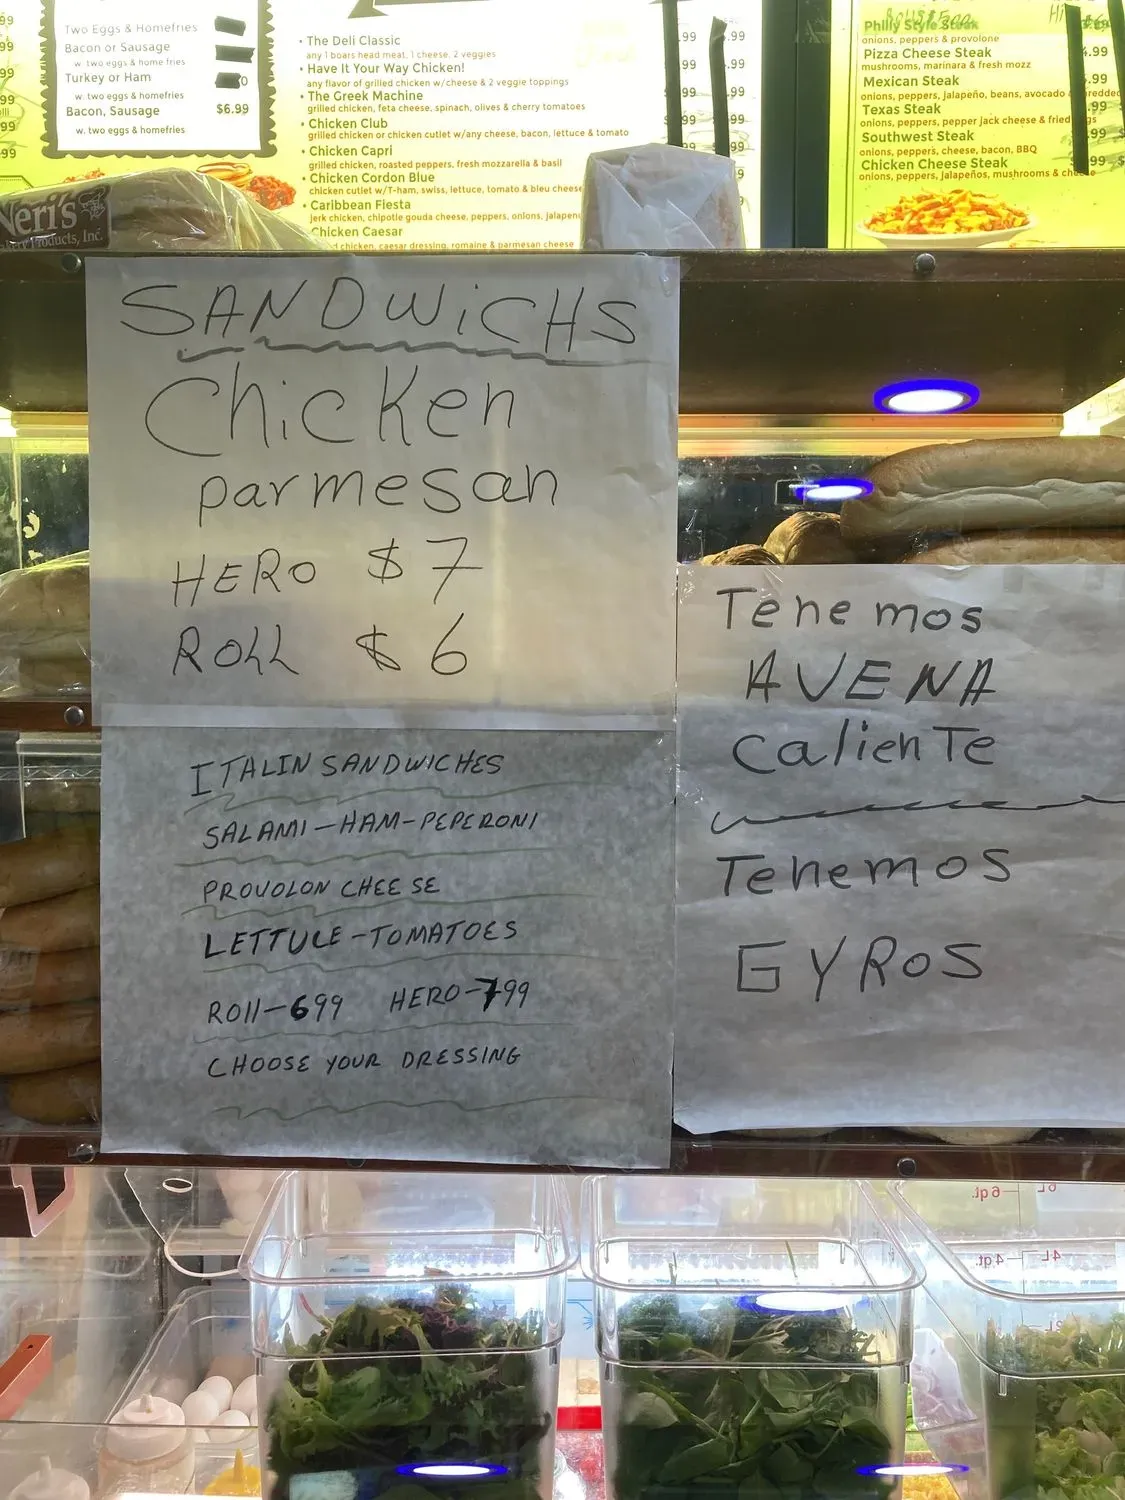 Two Eggs & Homefries
Bacon or Sausage
w. two eggs & home fries
Turkey or Ham
w. two eggs & homefries
Bacon, Sausage $6.99
w. two eggs & homefries
• The Deli Classic
any 1 boars head meat, 1 cheese, 2 veggies
• Have It Your Way Chicken!
any flavor of grilled chicken w/cheese & 2 veggie toppings
• The Greek Machine
grilled chicken, feta cheese, spinach, olives & cherry tomatoes
• Chicken Club
grilled chicken or chicken cutlet w/any cheese, bacon, lettuce & tomato
• Chicken Capri
grilled chicken, roasted peppers, fresh mozzarella & basil
• Chicken Cordon Blue
chicken cutlet w/T-ham, swiss, lettuce, tomato & bleu cheese
• Caribbean Fiesta
jerk chicken, chipotle gouda cheese, peppers, onions, jalapen
Chicken Caesar
chicken, caesar dressing, romaine & parmesan cheese
.99 .99
.99 .99
.99
Philly Style Steak
onions, peppers & provolone
Pizza Cheese Steak .99
mushrooms, marinara & fresh mozz
Mexican Steak .99
onions, peppers, jalapeño, beans, avocado
Texas Steak
onions, peppers, pepper jack cheese & fried
Southwest Steak
onions, peppers, cheese, bacon, BBQ
Chicken Cheese Steak
onions, peppers, jalapeños, mushrooms & cheese
Neri's
Products, Inc.
SANDWiCHS
Chicken
parmesan
HERO $7
ROLL $6
ITALIN SANDWICHES
SALAMI-HAM-PEPERONI
PROVOLON CHEESE
LETTULE-TOMATOES
ROll-699 HERO-799
CHOOSE YOUR DRESSING
Tenemos
AVENA
CalienTe
Tenemos
GYROS
6 qt. 6L
4 qt. 4L
2L